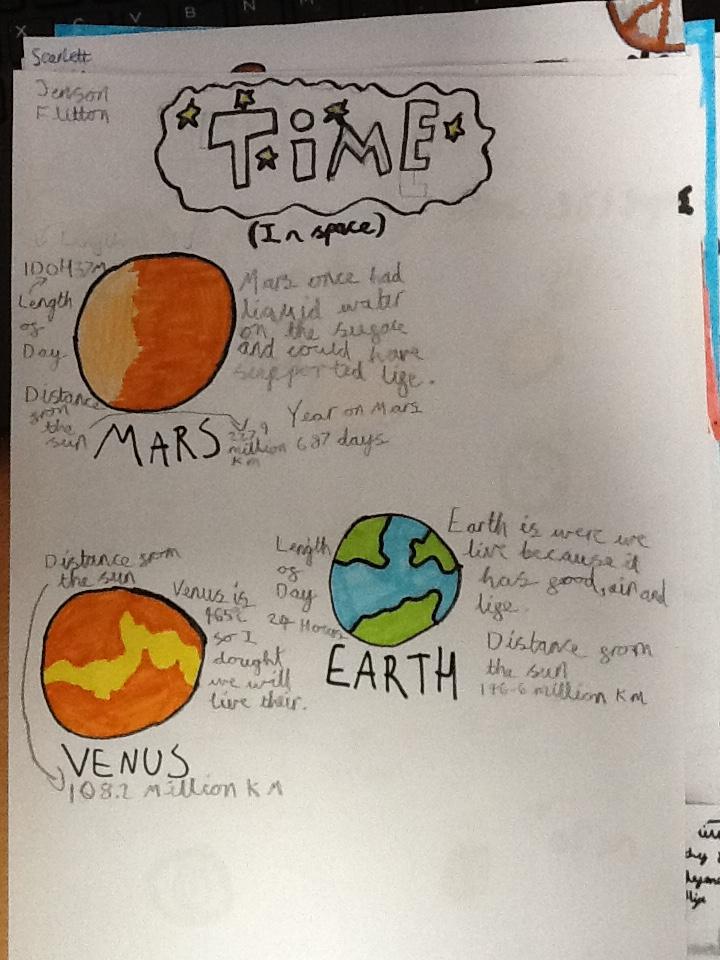 Scarlett
Jenson
Flitton
TiME
(In space)
1D0H37M
Length
of
Day
Mars once had
liquid water
on the surface
and could have
supported life.
Distance
from
the
sun
MARS
227.9
million
km
Year on Mars
687 days
Distance from
the sun
Venus is
465c
so I
dought
we will
live their.
VENUS
108.2 Million KM
Length
of
Day
24 Hours
Earth is were we
live because it
has good, air and
life.
EARTH
Distance from
the sun
146.6 million KM